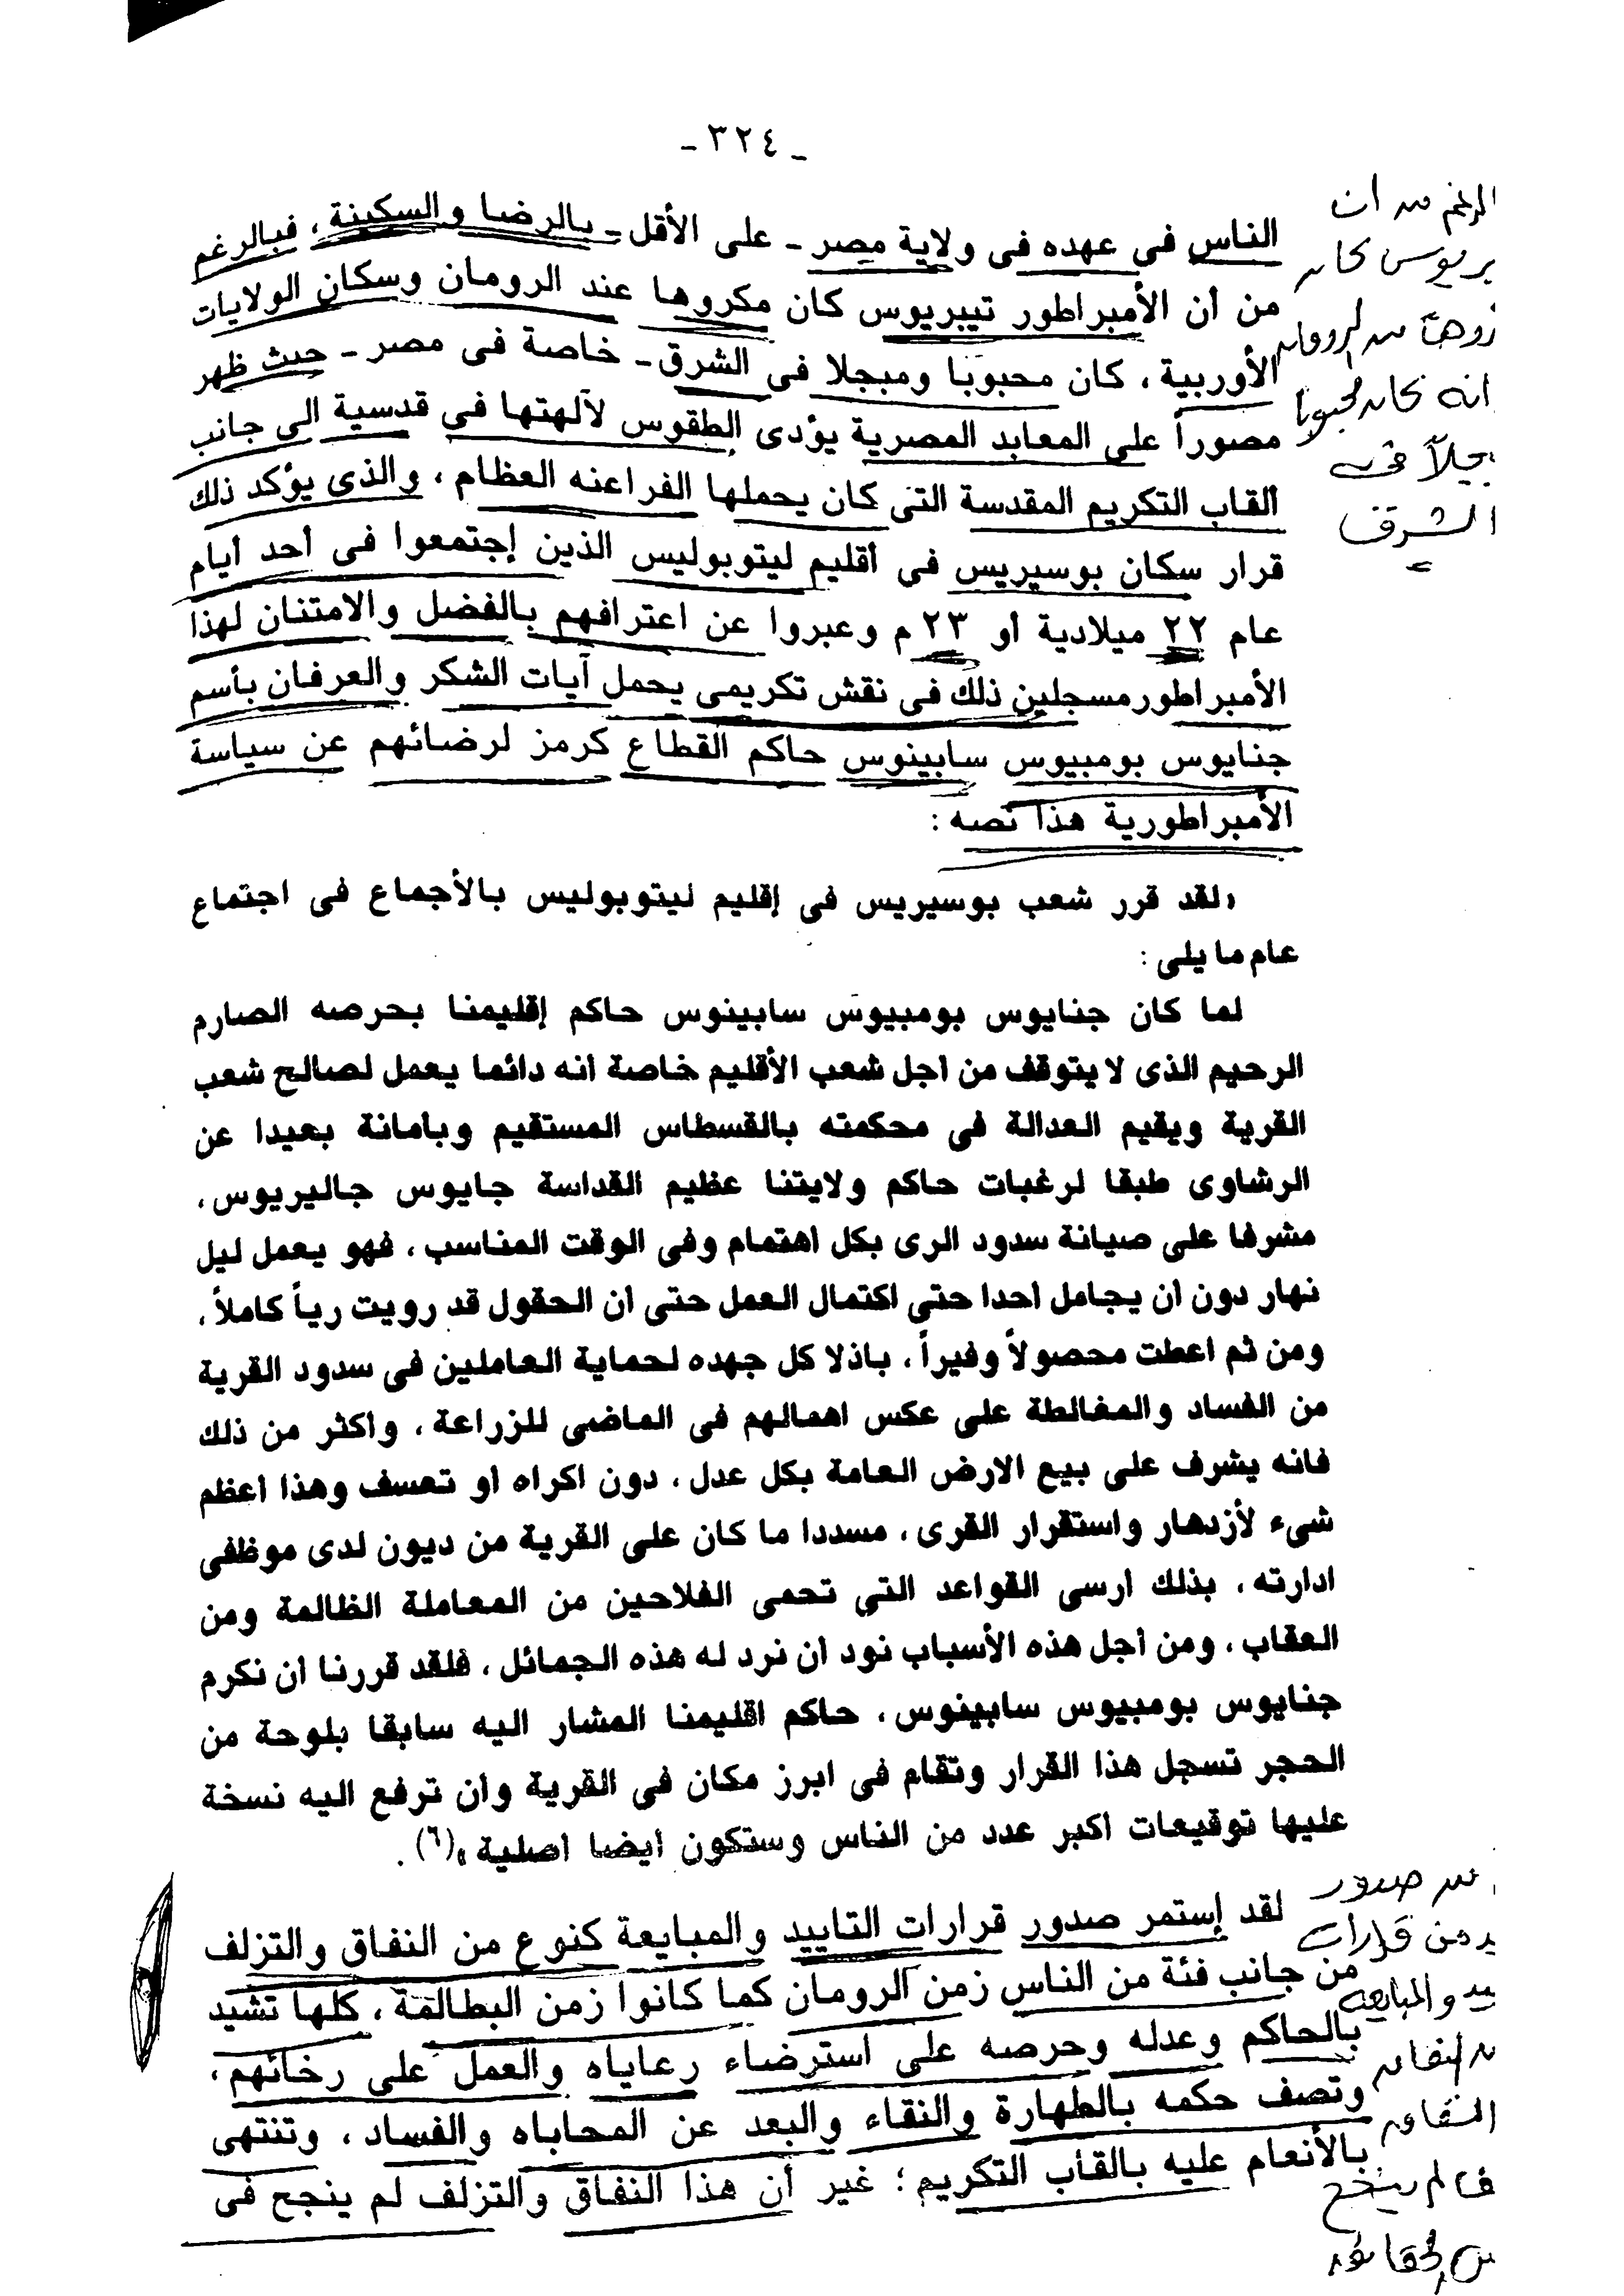 - ٣٢٤ -
الناس في عهده فى ولاية مصر - على الأقل - بالرضا والسكينة، فبالرغم
من أن الأمبراطور تيبريوس كان مكروها عند الرومان وسكان الولايات
الأوربية، كان محبوبا ومبجلا فى الشرق - خاصة فى مصر - حيث ظهر
مصوراً على المعابد المصرية يؤدى الطقوس لآلهتها فى قدسية الى جانب
ألقاب التكريم المقدسة التى كان يحملها الفراعنه العظام، والذى يؤكد ذلك
قرار سكان بوسيريس فى أقليم ليتوبوليس الذين إجتمعوا فى أحد أيام
عام ٢٢ ميلادية أو ٢٣ م وعبروا عن اعترافهم بالفضل والامتنان لهذا
الأمبراطور مسجلين ذلك فى نقش تكريمى يحمل آيات الشكر والعرفان بأسم
جنايوس بومبيوس سابينوس حاكم القطاع كرمز لرضائهم عن سياسة
الأمبراطورية هذا نصه :
«لقد قرر شعب بوسيريس فى إقليم ليتوبوليس بالأجماع فى اجتماع
عام ما يلى :
لما كان جنايوس بومبيوس سابينوس حاكم إقليمنا بحرصه الصارم
الرحيم الذى لا يتوقف من اجل شعب الأقليم خاصة انه دائما يعمل لصالح شعب
القرية ويقيم العدالة فى محكمته بالقسطاس المستقيم وبأمانة بعيدا عن
الرشاوى طبقا لرغبات حاكم ولايتنا عظيم القداسة جايوس جاليريوس،
مشرفا على صيانة سدود الرى بكل اهتمام وفى الوقت المناسب، فهو يعمل ليل
نهار دون ان يجامل احدا حتى اكتمال العمل حتى ان الحقول قد رويت رياً كاملاً،
ومن ثم اعطت محصولاً وفيراً، باذلا كل جهده لحماية العاملين فى سدود القرية
من الفساد والمغالطة على عكس اهمالهم فى الماضى للزراعة، واكثر من ذلك
فانه يشرف على بيع الارض العامة بكل عدل، دون اكراه او تعسف وهذا اعظم
شىء لأزدهار واستقرار القرى، مسددا ما كان على القرية من ديون لدى موظفى
ادارته، بذلك ارسى القواعد التى تحمى الفلاحين من المعاملة الظالمة ومن
العقاب، ومن أجل هذه الأسباب نود ان نرد له هذه الجمائل، فلقد قررنا ان نكرم
جنايوس بومبيوس سابينوس، حاكم اقليمنا المشار اليه سابقا بلوحة من
الحجر تسجل هذا القرار وتقام فى ابرز مكان فى القرية وان ترفع اليه نسخة
عليها توقيعات اكبر عدد من الناس وستكون ايضا اصلية»(٦).
لقد إستمر صدور قرارات التاييد والمبايعة كنوع من النفاق والتزلف
من جانب فئة من الناس زمن الرومان كما كانوا زمن البطالمة، كلها تشيد
بالحاكم وعدله وحرصه على استرضاء رعاياه والعمل على رخائهم،
وتصف حكمه بالطهارة والنقاء والبعد عن المحاباه والفساد، وتنتهى
بالأنعام عليه بالقاب التكريم؛ غير أن هذا النفاق والتزلف لم ينجح فى
الرغم من ان
يريوس كان
من الرومان
انه كان محبوبا
فى
الشرق
صدور
من قرارات
والمبايعة
النفاق
لم ينجح